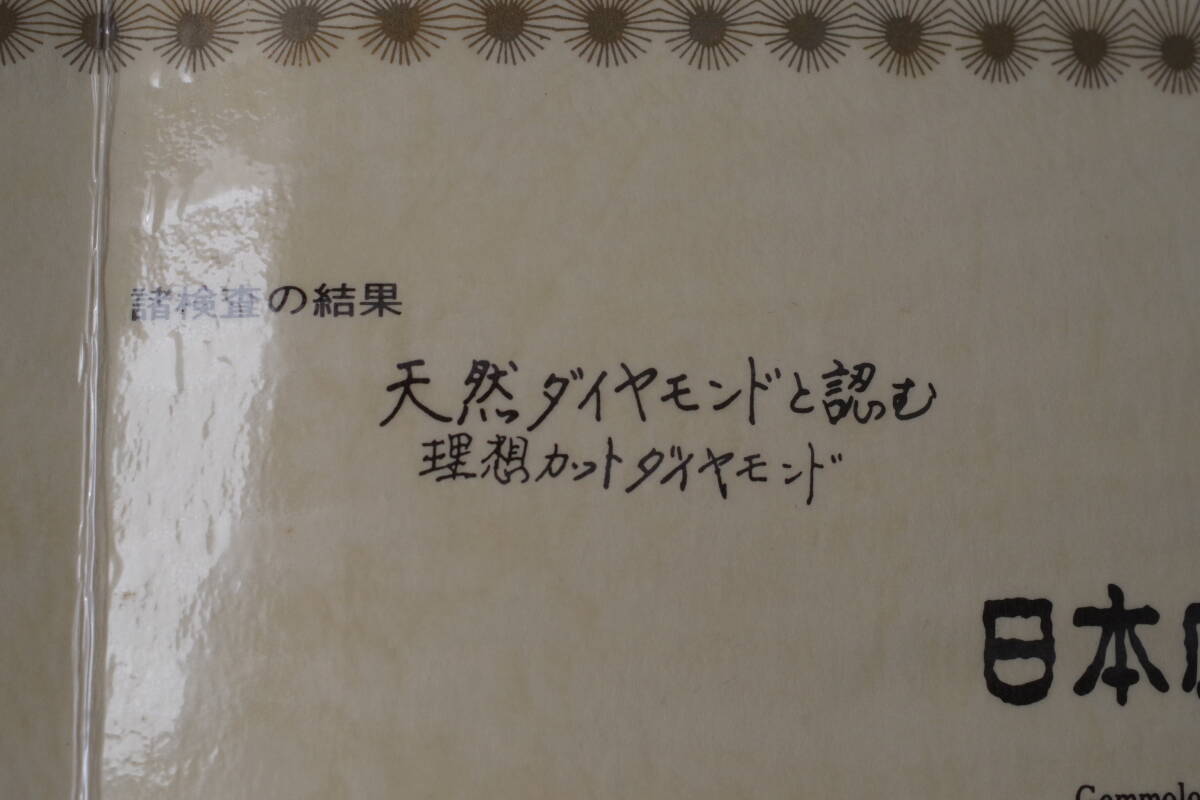 諸検査の結果
天然ダイヤモンドと認む
理想カットダイヤモンド
日本